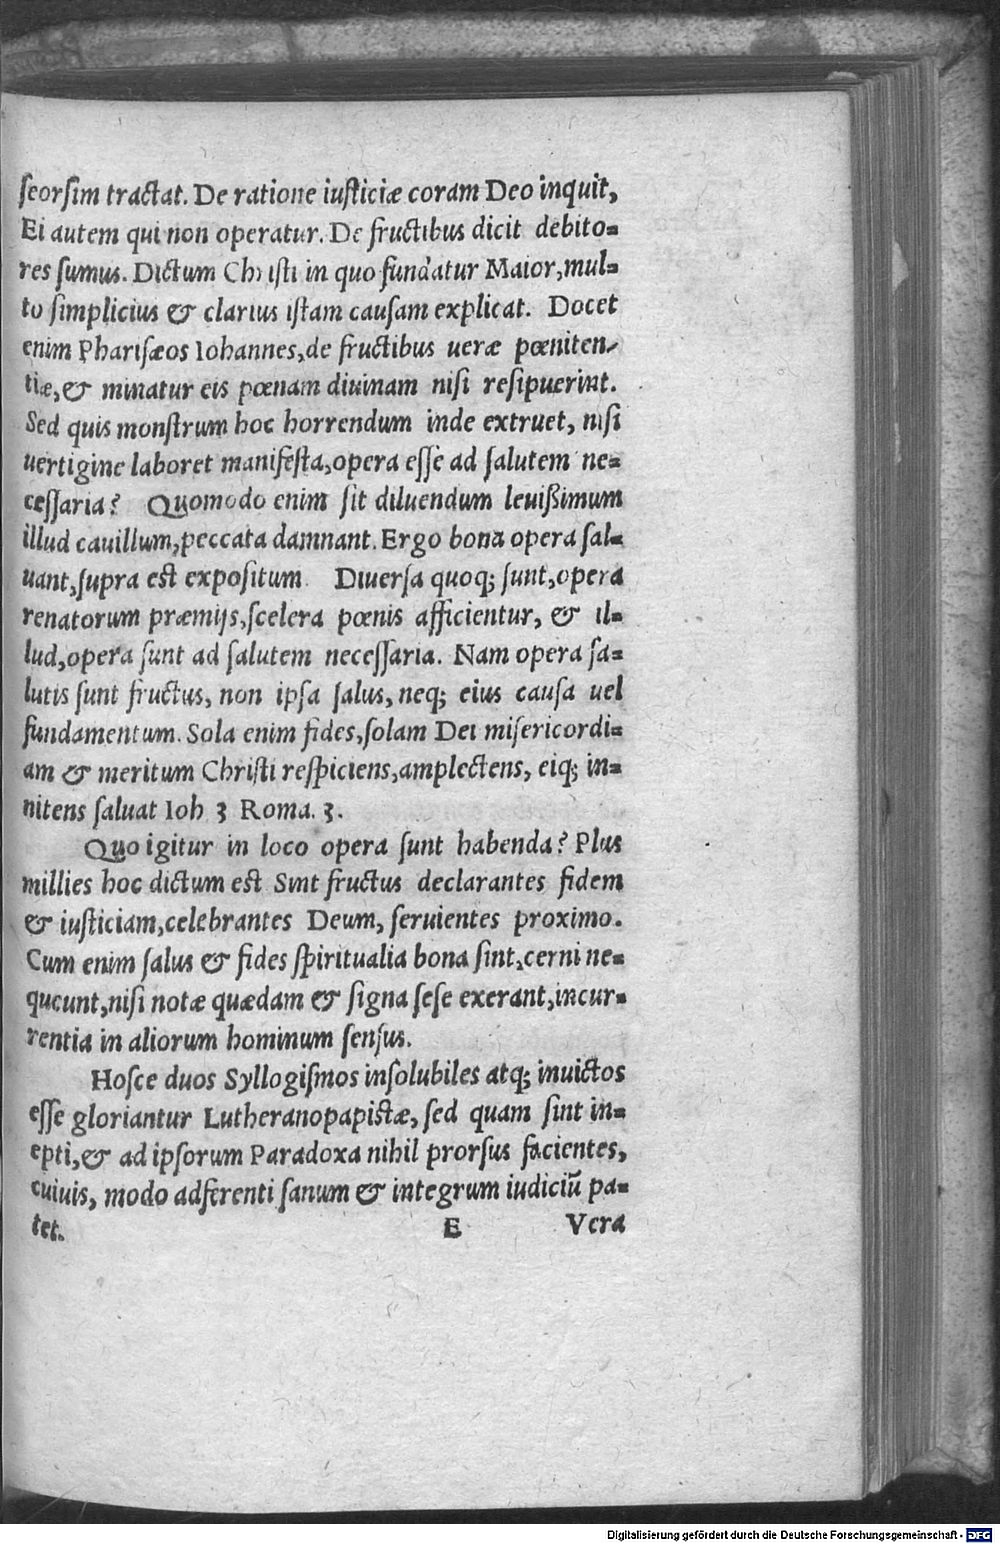 ſeorſim tractat. De ratione iuſticiæ coram Deo inquit,
Ei autem qui non operatur. De fructibus dicit debito-
res ſumus. Dictum Chriſti in quo fundatur Maior, mul-
to ſimplicius & clarius iſtam cauſam explicat. Docet
enim Phariſæos Iohannes, de fructibus ueræ pœniten-
tiæ, & minatur eis pœnam diuinam niſi reſipuerint.
Sed quis monſtrum hoc horrendum inde extruet, niſi
uertigine laboret manifeſta, opera eſſe ad ſalutem ne-
ceſſaria? Quomodo enim ſit diluendum leuißimum
illud cauillum, peccata damnant. Ergo bona opera ſal-
uant, ſupra est expoſitum. Diuerſa quoq; ſunt, opera
renatorum præmijs, ſcelera pœnis afficientur, & il-
lud, opera ſunt ad ſalutem neceſſaria. Nam opera ſa-
lutis ſunt fructus, non ipſa ſalus, neq; eius cauſa uel
fundamentum. Sola enim fides, ſolam Dei miſericordi-
am & meritum Chriſti reſpiciens, amplectens, eiq; in-
nitens ſaluat Ioh 3 Roma. 3.
Quo igitur in loco opera ſunt habenda? Plus
millies hoc dictum est Sint fructus declarantes fidem
& iuſticiam, celebrantes Deum, ſeruientes proximo.
Cum enim ſalus & fides ſpiritualia bona ſint, cerni ne-
queunt, niſi notæ quædam & ſigna ſeſe exerant, incur-
rentia in aliorum hominum ſenſus.
Hoſce duos Syllogiſmos inſolubiles atq; inuictos
eſſe gloriantur Lutheranopapistæ, ſed quam ſint in-
epti, & ad ipſorum Paradoxa nihil prorſus facientes,
cuiuis, modo adferenti ſanum & integrum iudiciū pa-
tet. E Vera
Digitalisierung gefördert durch die Deutsche Forschungsgemeinschaft - DFG